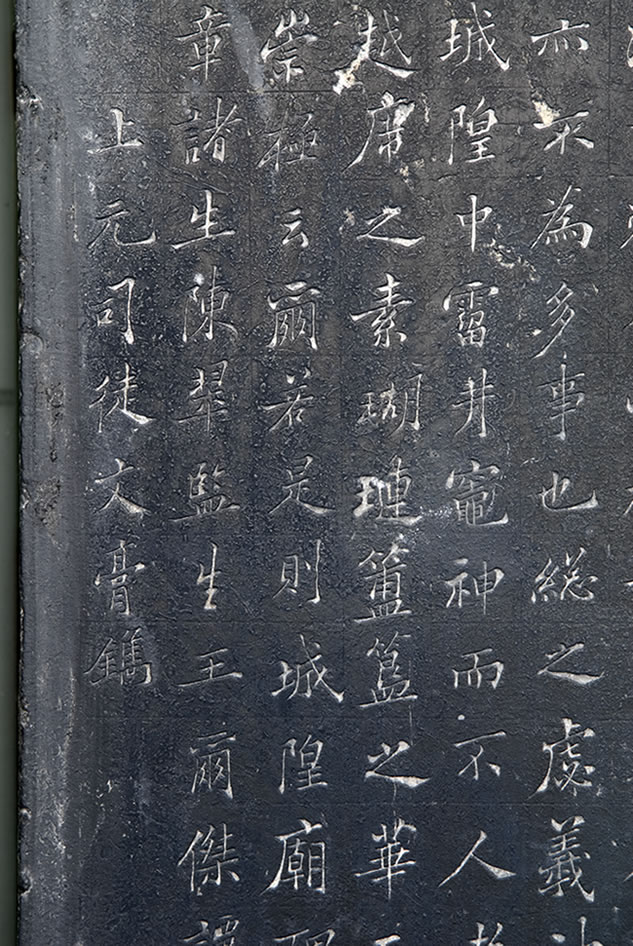 亦不為多事也総之處義
城隍中霤井竈神而不人
越席之素瑚璉簠簋之華
崇極云爾若是則城隍廟
章諸生陳翠監生王爾傑譔
上元司徒文膏鐫